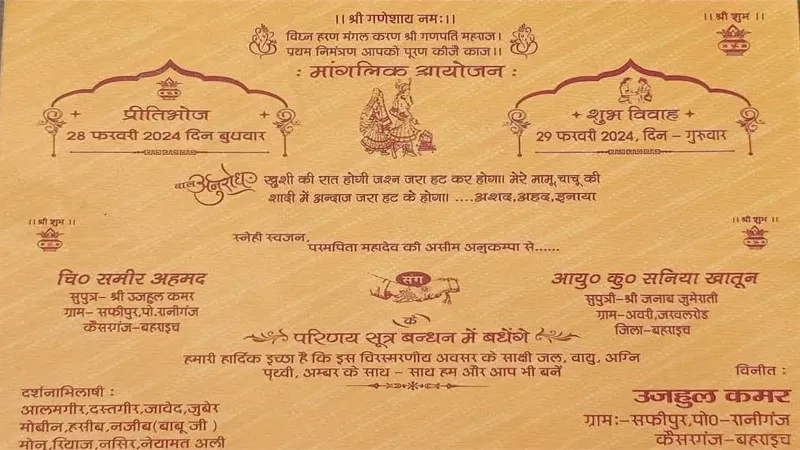 ।। श्री गणेशाय नमः।।
।। श्री शुभ ।।
विघ्न हरण मंगल करण श्री गणपति महराज।
प्रथम निमंत्रण आपको पूरण कीजै काज।।
: मांगलिक आयोजन :
प्रीतिभोज
28 फरवरी 2024 दिन बुधवार
शुभ विवाह
29 फरवरी 2024, दिन - गुरूवार
बाल अनुरोध खुशी की रात होगी जश्न जरा हट कर होगा। मेरे मामू,चाचू की
शादी में अन्दाज जरा हट के होगा। ....अशद,अहद,इनाया
।। श्री शुभ ।।
।। श्री शुभ ।।
स्नेही स्वजन,
परमपिता महादेव की असीम अनुकम्पा से......
चि० समीर अहमद
सुपुत्र- श्री उजहुल कमर
ग्राम- सफीपुर,पो.रानीगंज
कैसरगंज-बहराइच
संग
आयु० कु० सनिया खातून
सुपुत्री-श्री जनाब जुमेराती
ग्राम-अवरी,जरवलरोड
जिला-बहराइच
के
परिणय सूत्र बन्धन में बधेंगे
हमारी हार्दिक इच्छा है कि इस विरस्मरणीय अवसर के साक्षी जल, वायु, अग्नि
पृथ्वी, अम्बर के साथ - साथ हम और आप भी बनें
दर्शनाभिलाषी :
आलमगीर,दस्तगीर,जावेद,जुबेर
मोबीन,हसीब,नजीब(बाबू जी )
मोनू,रियाज,नसिर,नेयामत अली
विनीत :
उजहुल कमर
ग्राम:-सफीपुर,पो0-रानीगंज
कैसरगंज-बहराइच